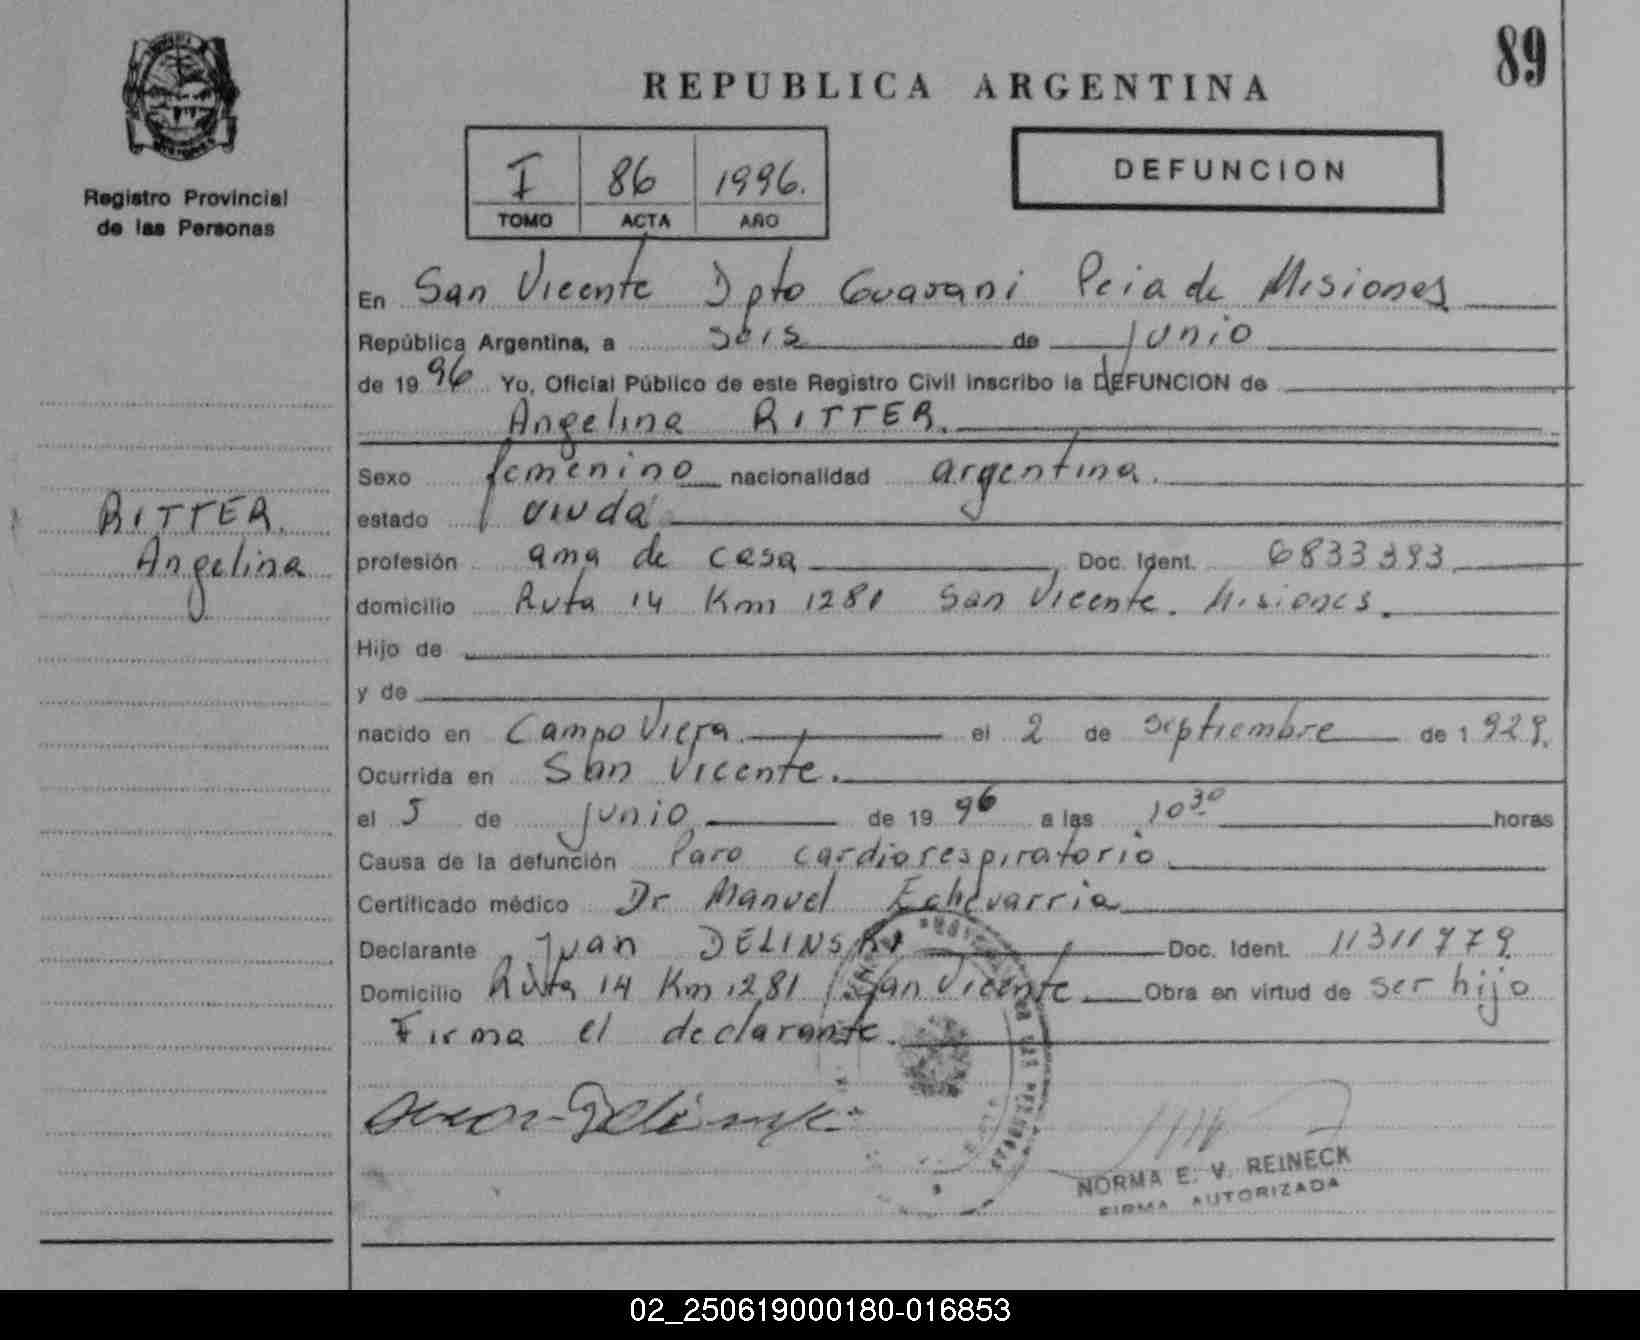 89
REPUBLICA ARGENTINA
DEFUNCION
I 86 1996.
TOMO ACTA AÑO
Registro Provincial
de las Personas
RITTER.
Angelina
En San Vicente Dpto Guarani Pcia de Misiones
República Argentina, a seis de junio
de 1996 Yo, Oficial Público de este Registro Civil inscribo la DEFUNCION de
Angelina RITTER.
Sexo femenino nacionalidad argentina.
estado viuda
profesión ama de casa Doc. Ident. 6833393
domicilio Ruta 14 Km 1281 San Vicente. Misiones.
Hijo de
y de
nacido en Campo Viera el 2 de septiembre de 1929.
Ocurrida en San Vicente.
el 5 de junio de 1996 a las 10 30 horas
Causa de la defunción Paro cardiorespiratorio.
Certificado médico Dr Manuel Echevarria
Declarante Juan DELINSKI Doc. Ident. 11311779.
Domicilio Ruta 14 Km 1281 San Vicente Obra en virtud de ser hijo
Firma el declarante.
NORMA E. V. REINECK
FIRMA AUTORIZADA
02_250619000180-016853